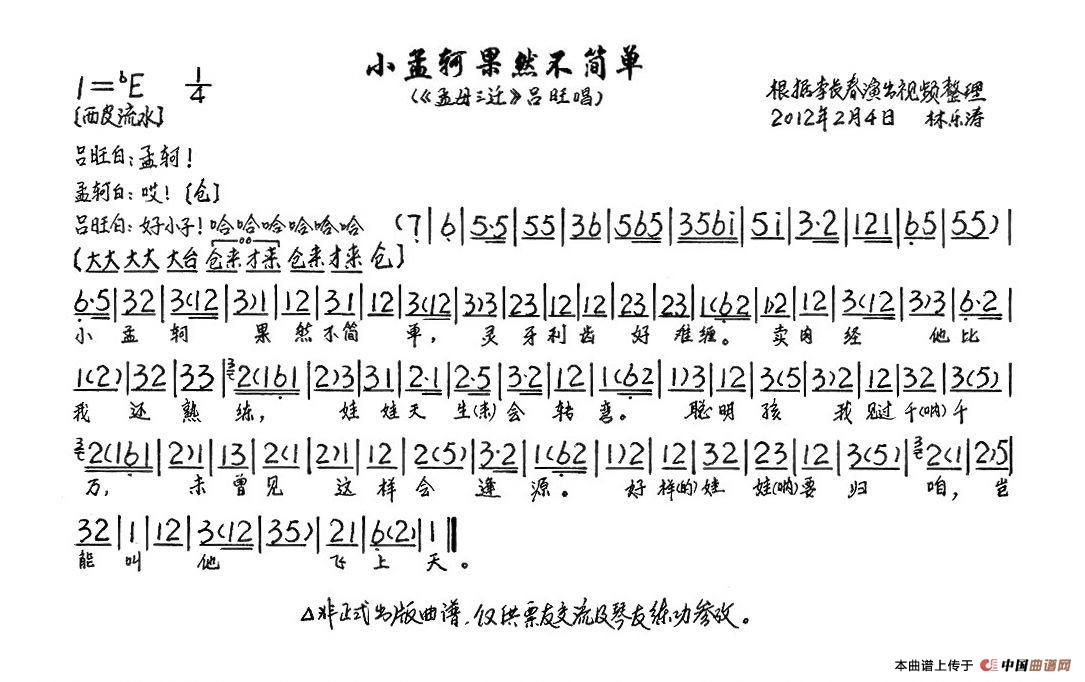 小孟轲果然不简单
(《孟母三迁》吕旺唱)
1=♭E 1/4
[西皮流水]
根据李长春演出视频整理
2012年2月4日 林乐涛
吕旺白:孟轲!
孟轲白:哎![仓]
吕旺白:好小子!哈哈哈哈哈哈 (7|6|5·5|55|36|565|3561|51|3·2|121|65|55)|
[大大 大大 大台 仓来才来 仓来才来 仓]
6·5|32|3(12|3)1|12|31|12|3(12|3)3|23|12|12|23|23|1(62|1)2|12|3(12|3)3|6·2|
小孟轲果然不简单,灵牙利齿好难缠。卖肉经他比
1(2)|32|33|2(161|2)3|31|2·1|2·5|3·2|12|1(62|1)3|12|3(5|3)2|12|32|3(5)|
我还熟练,娃娃天生(来)会转弯。聪明孩我见过千(呐)千
2(161|2)1|13|2(1|2)1|12|2(5)|3·2|1(62|1)2|12|32|23|12|3(5)|2(1|2)5|
万,未曾见这样会逢源。好样(的)娃娃(呐)要归咱,岂
32|1|12|3(12|35)|21|6(2)|1‖
能叫他飞上天。
△非正式出版曲谱,仅供票友交流及琴友练功参考。
本曲谱上传于 中国曲谱网